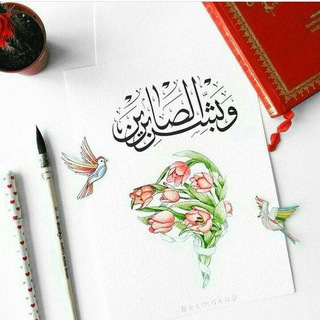 وَبَشِّرِ الصَّابِرِينَ
@esmakup